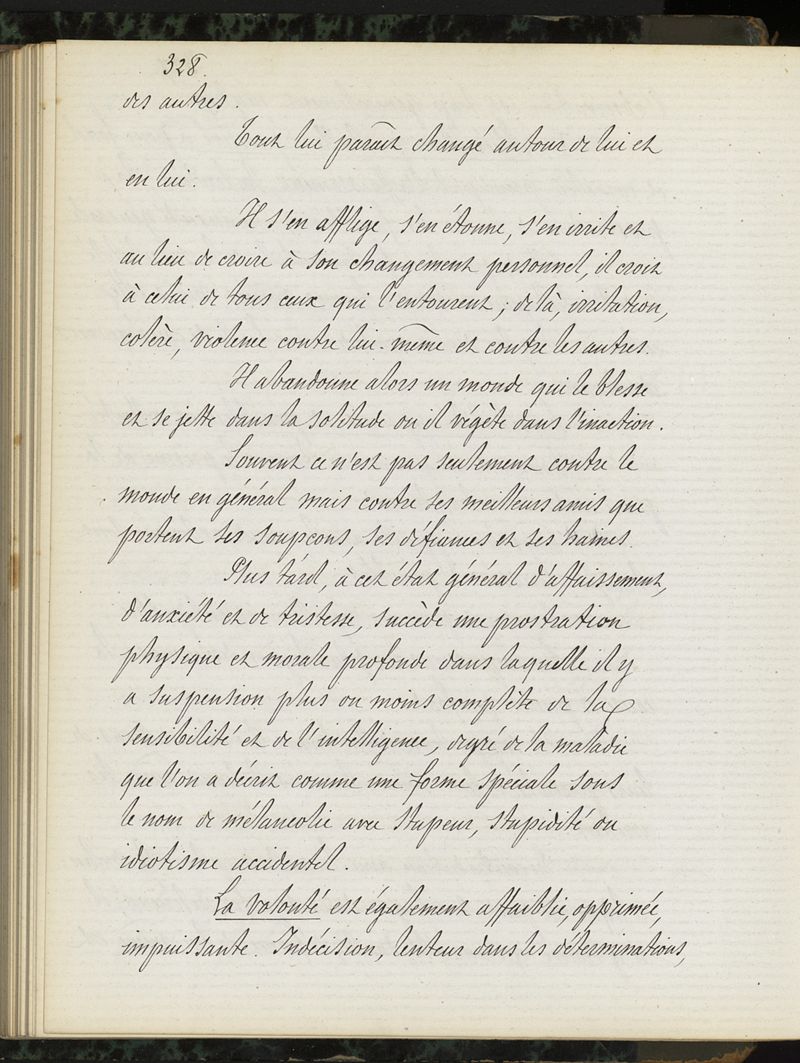 328.
des autres.
Tout lui paraît changé autour de lui et
en lui.
Il s'en afflige, s'en étonne, s'en irrite et
au lieu de croire à son changement personnel, il croit
à celui de tous ceux qui l'entourent; de là, irritation,
colère, violence contre lui-même et contre les autres.
Il abandonne alors un monde qui le blesse
et se jette dans la solitude ou il végète dans l'inaction.
Souvent ce n'est pas seulement contre le
monde en général mais contre ses meilleurs amis que
portent ses soupcons, ses défiances et ses haines.
Plus tard, à cet état général d'affaissement,
d'anxiété et de tristesse, succède une prostration
physique et morale profonde dans laquelle il y
a suspension plus ou moins complète de la
sensibilité et de l'intelligence, degré de la maladie
que l'on a décrit comme une forme spéciale sous
le nom de mélancolie avec stupeur, stupidité ou
idiotisme accidentel.
La volonté est également affaiblie, opprimée,
impuissante. Indécision, lenteur dans les déterminations,